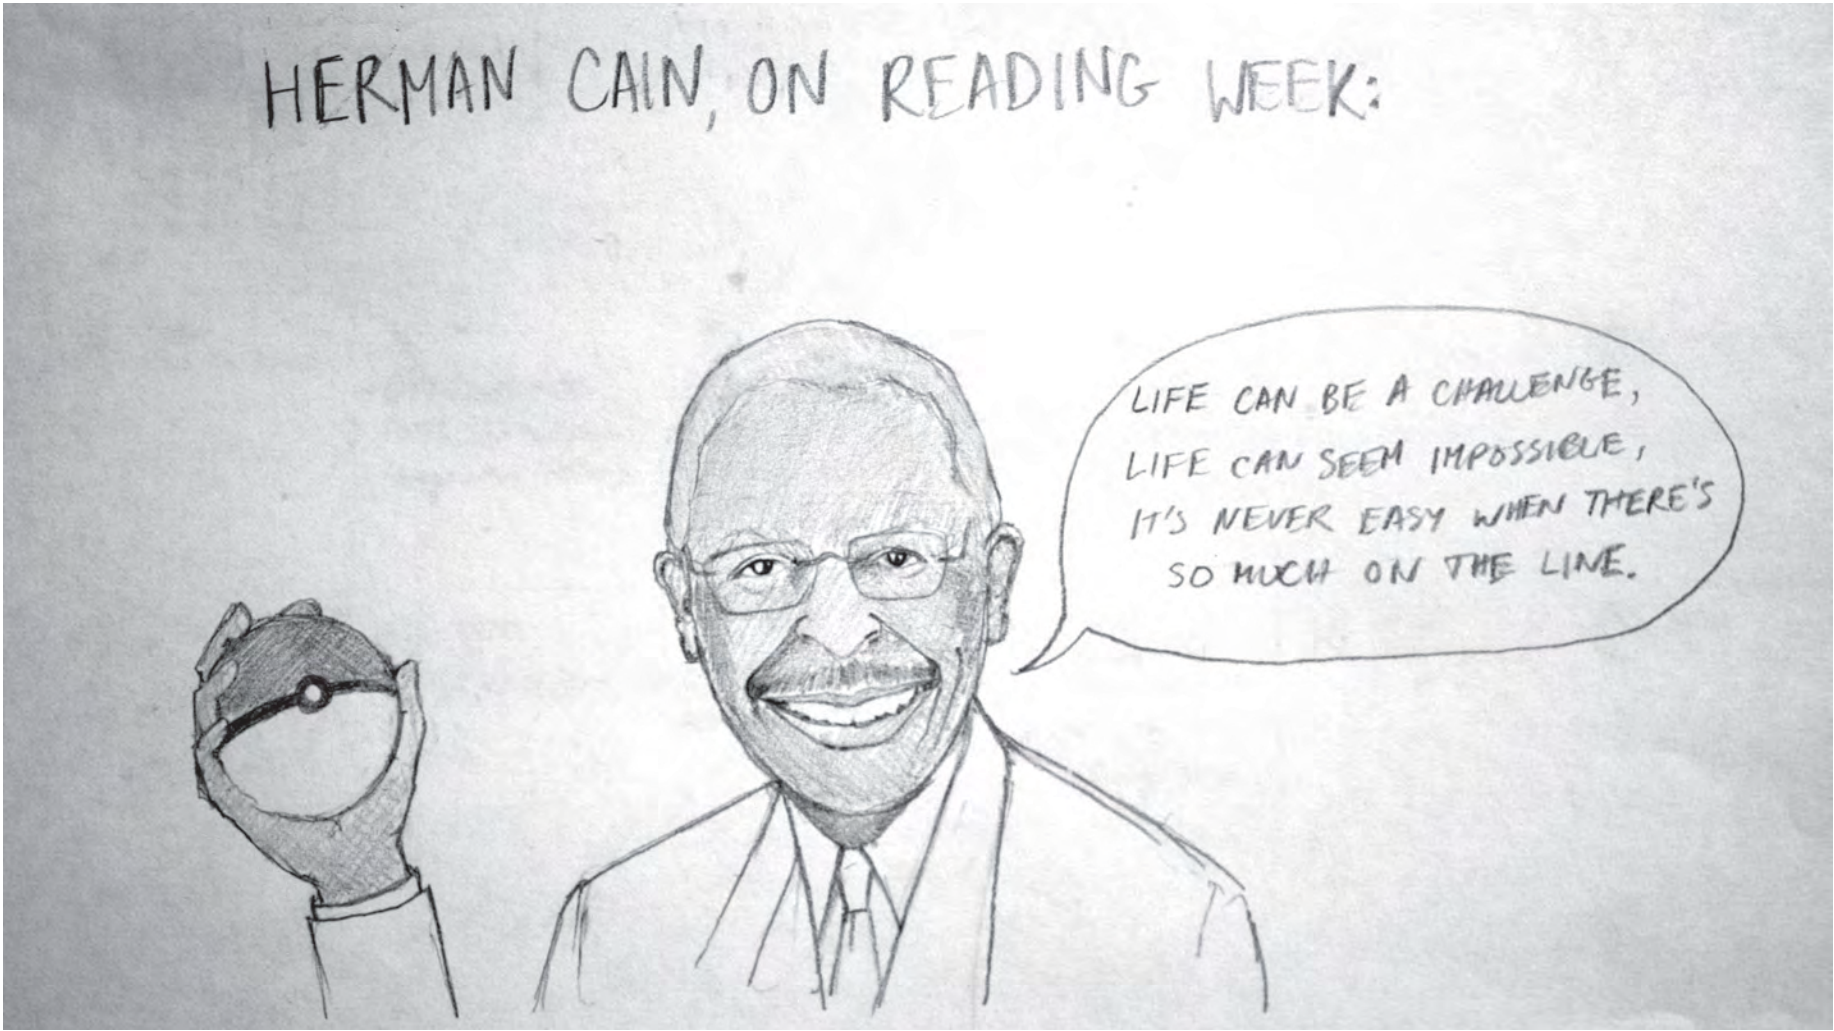 HERMAN CAIN, ON READING WEEK:
LIFE CAN BE A CHALLENGE,
LIFE CAN SEEM IMPOSSIBLE,
IT'S NEVER EASY WHEN THERE'S
SO MUCH ON THE LINE.